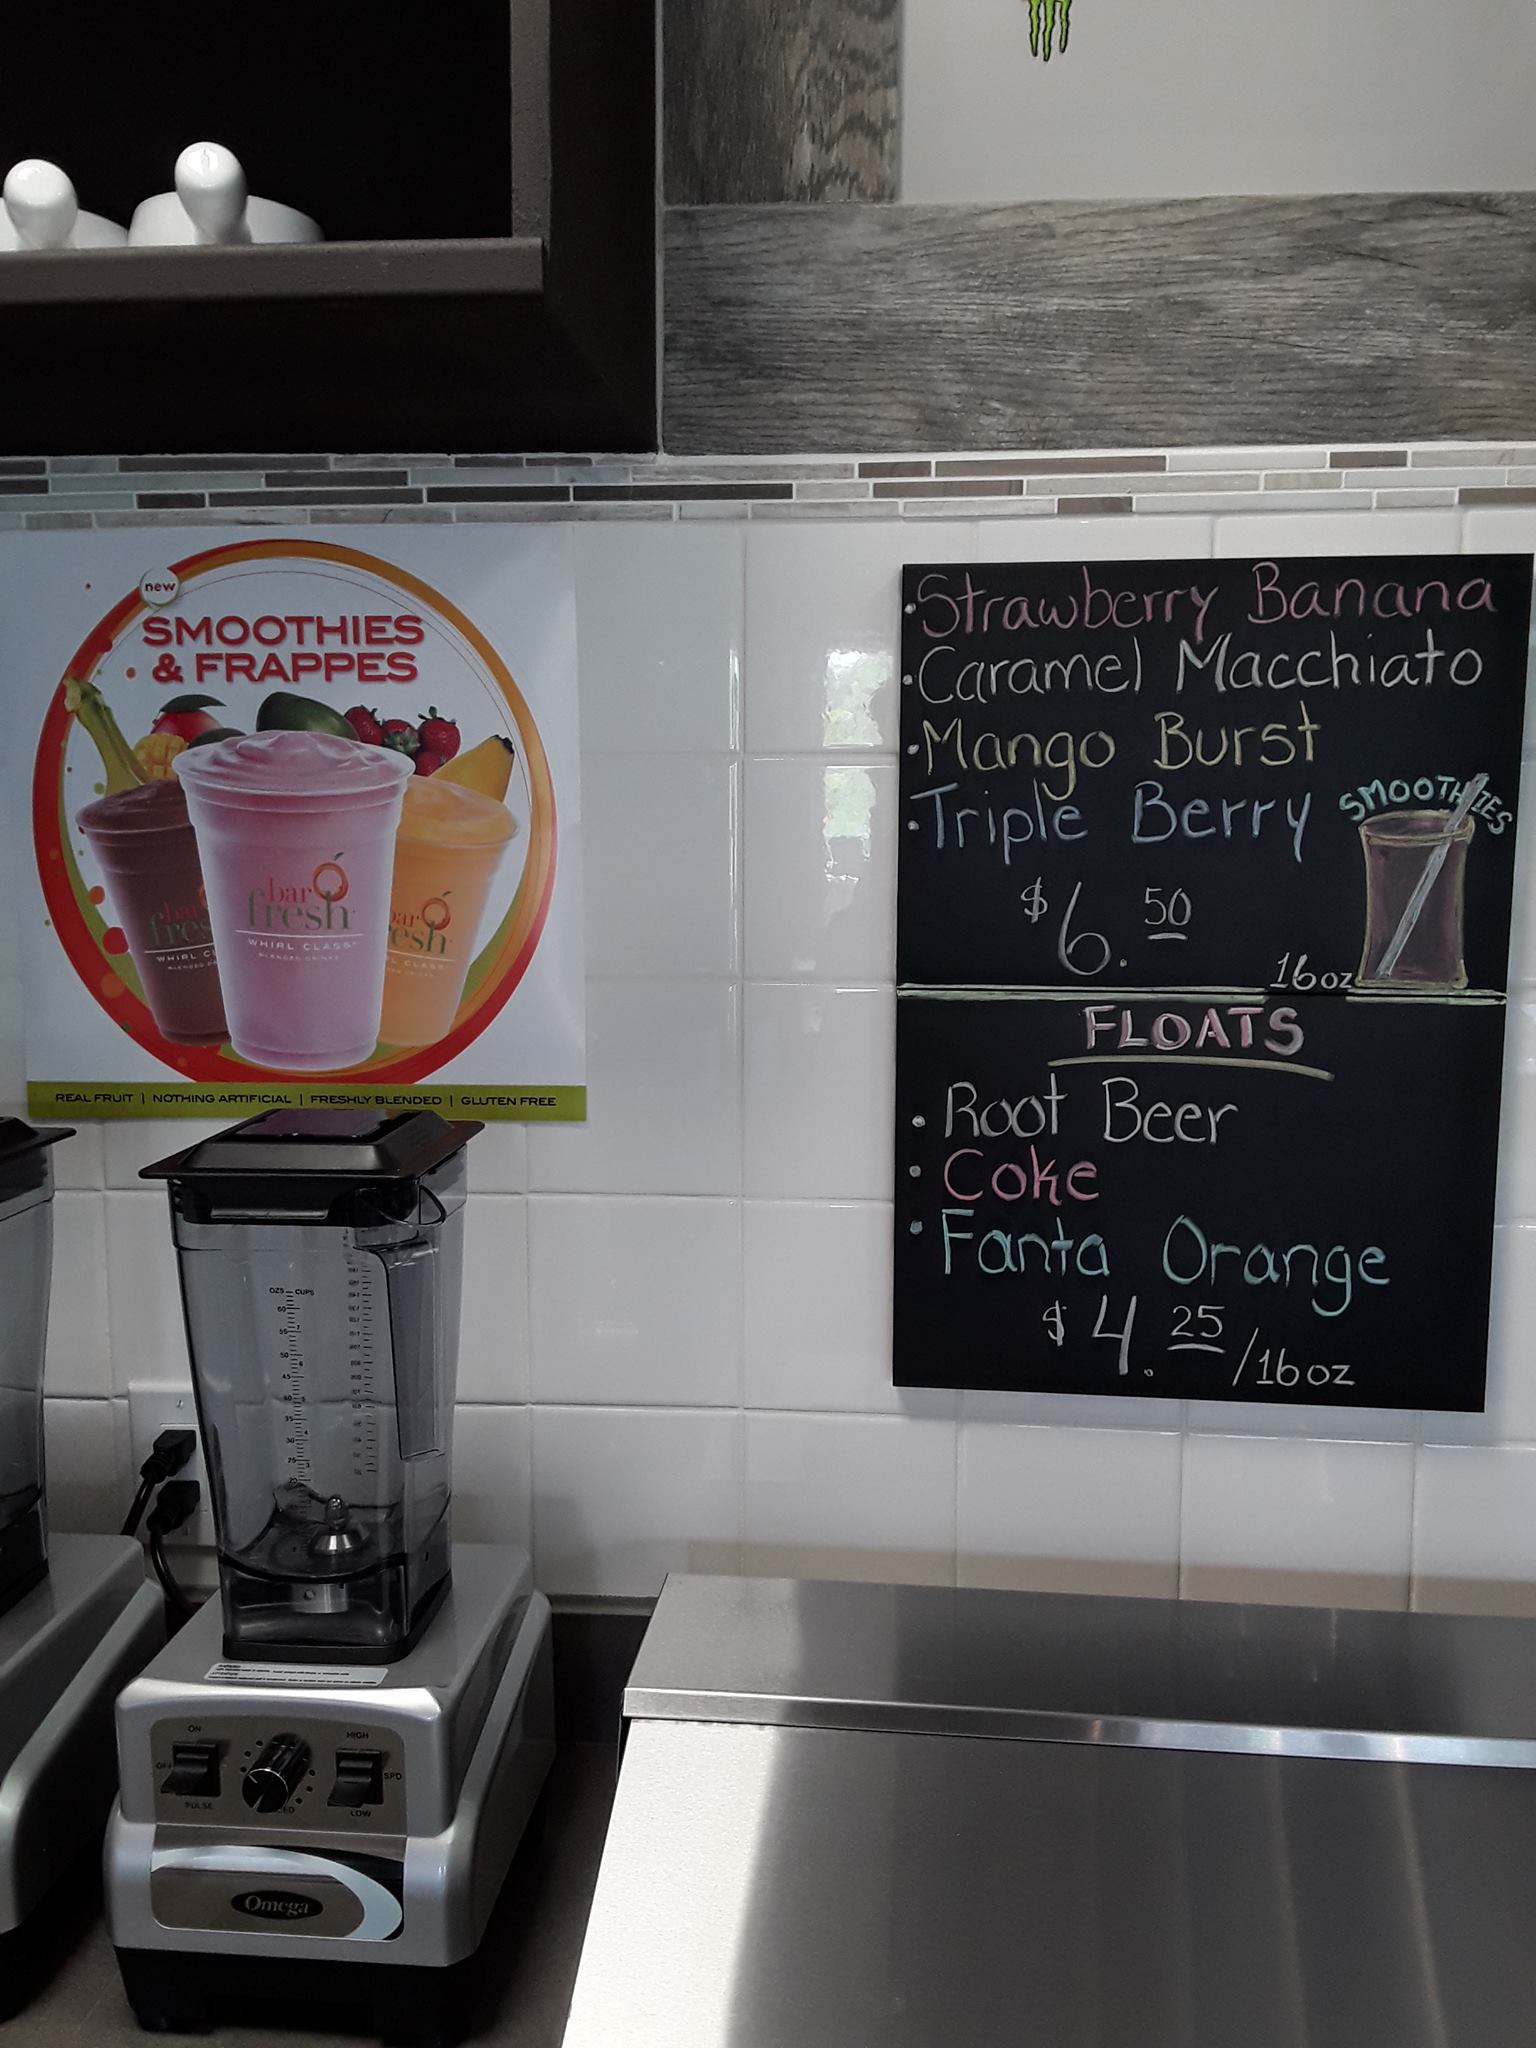 new
SMOOTHIES
& FRAPPES
bar
fresh
WHIRL CLASS
BLENDED DRINKS
REAL FRUIT | NOTHING ARTIFICIAL | FRESHLY BLENDED | GLUTEN FREE
• Strawberry Banana
• Caramel Macchiato
• Mango Burst
• Triple Berry
SMOOTHIES
$6.50
16oz
FLOATS
• Root Beer
• Coke
• Fanta Orange
$4.25/16oz
OZS CUPS
ON
OFF
PULSE
HIGH
SPD
LOW
Omega